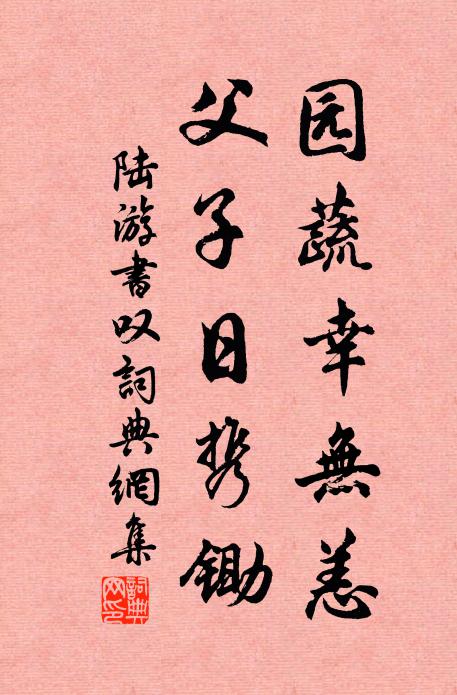 园蔬幸無恙
父子日携锄
陆游書叹詞典網集
詞典網印